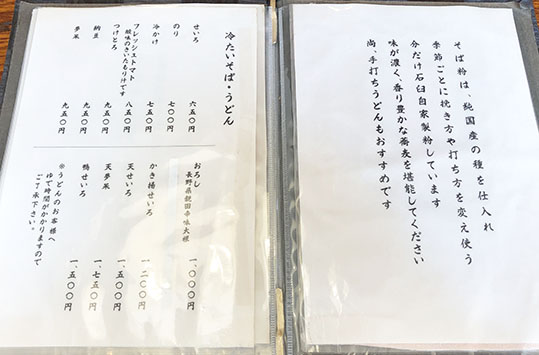 そば粉は、純国産の種を仕入れ
季節ごとに挽き方や打ち方を変え使う
分だけ石臼自家製粉しています
味が濃く、香り豊かな蕎麦を堪能してください
尚、手打ちうどんもおすすめです
冷たいそば・うどん
せいろ 六五〇円
のり 七〇〇円
冷かけ 七五〇円
フレッシュトマト 八五〇円
酸味のきいたもり汁です
つけとろ 九五〇円
納豆 九五〇円
夢米 九五〇円
おろし 一、〇〇〇円
長野県親田辛味大根
かき揚せいろ 一、二〇〇円
天せいろ 一、五〇〇円
天夢米 一、七五〇円
鴨せいろ 一、五〇〇円
※うどんのお客様へ
ゆで時間がかかりますので
ご了承下さい。